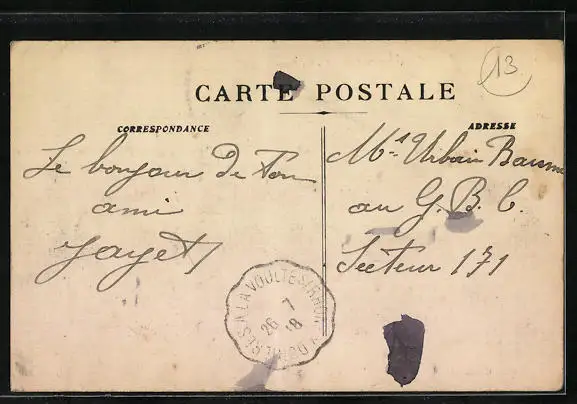 13
CARTE POSTALE
CORRESPONDANCE
ADRESSE
Le bonjour De ton
ami
Jayet
Mr Urbain
au G. B. C.
Secteur 171
A LA VOULTE-S/-RHONE
26 7
18